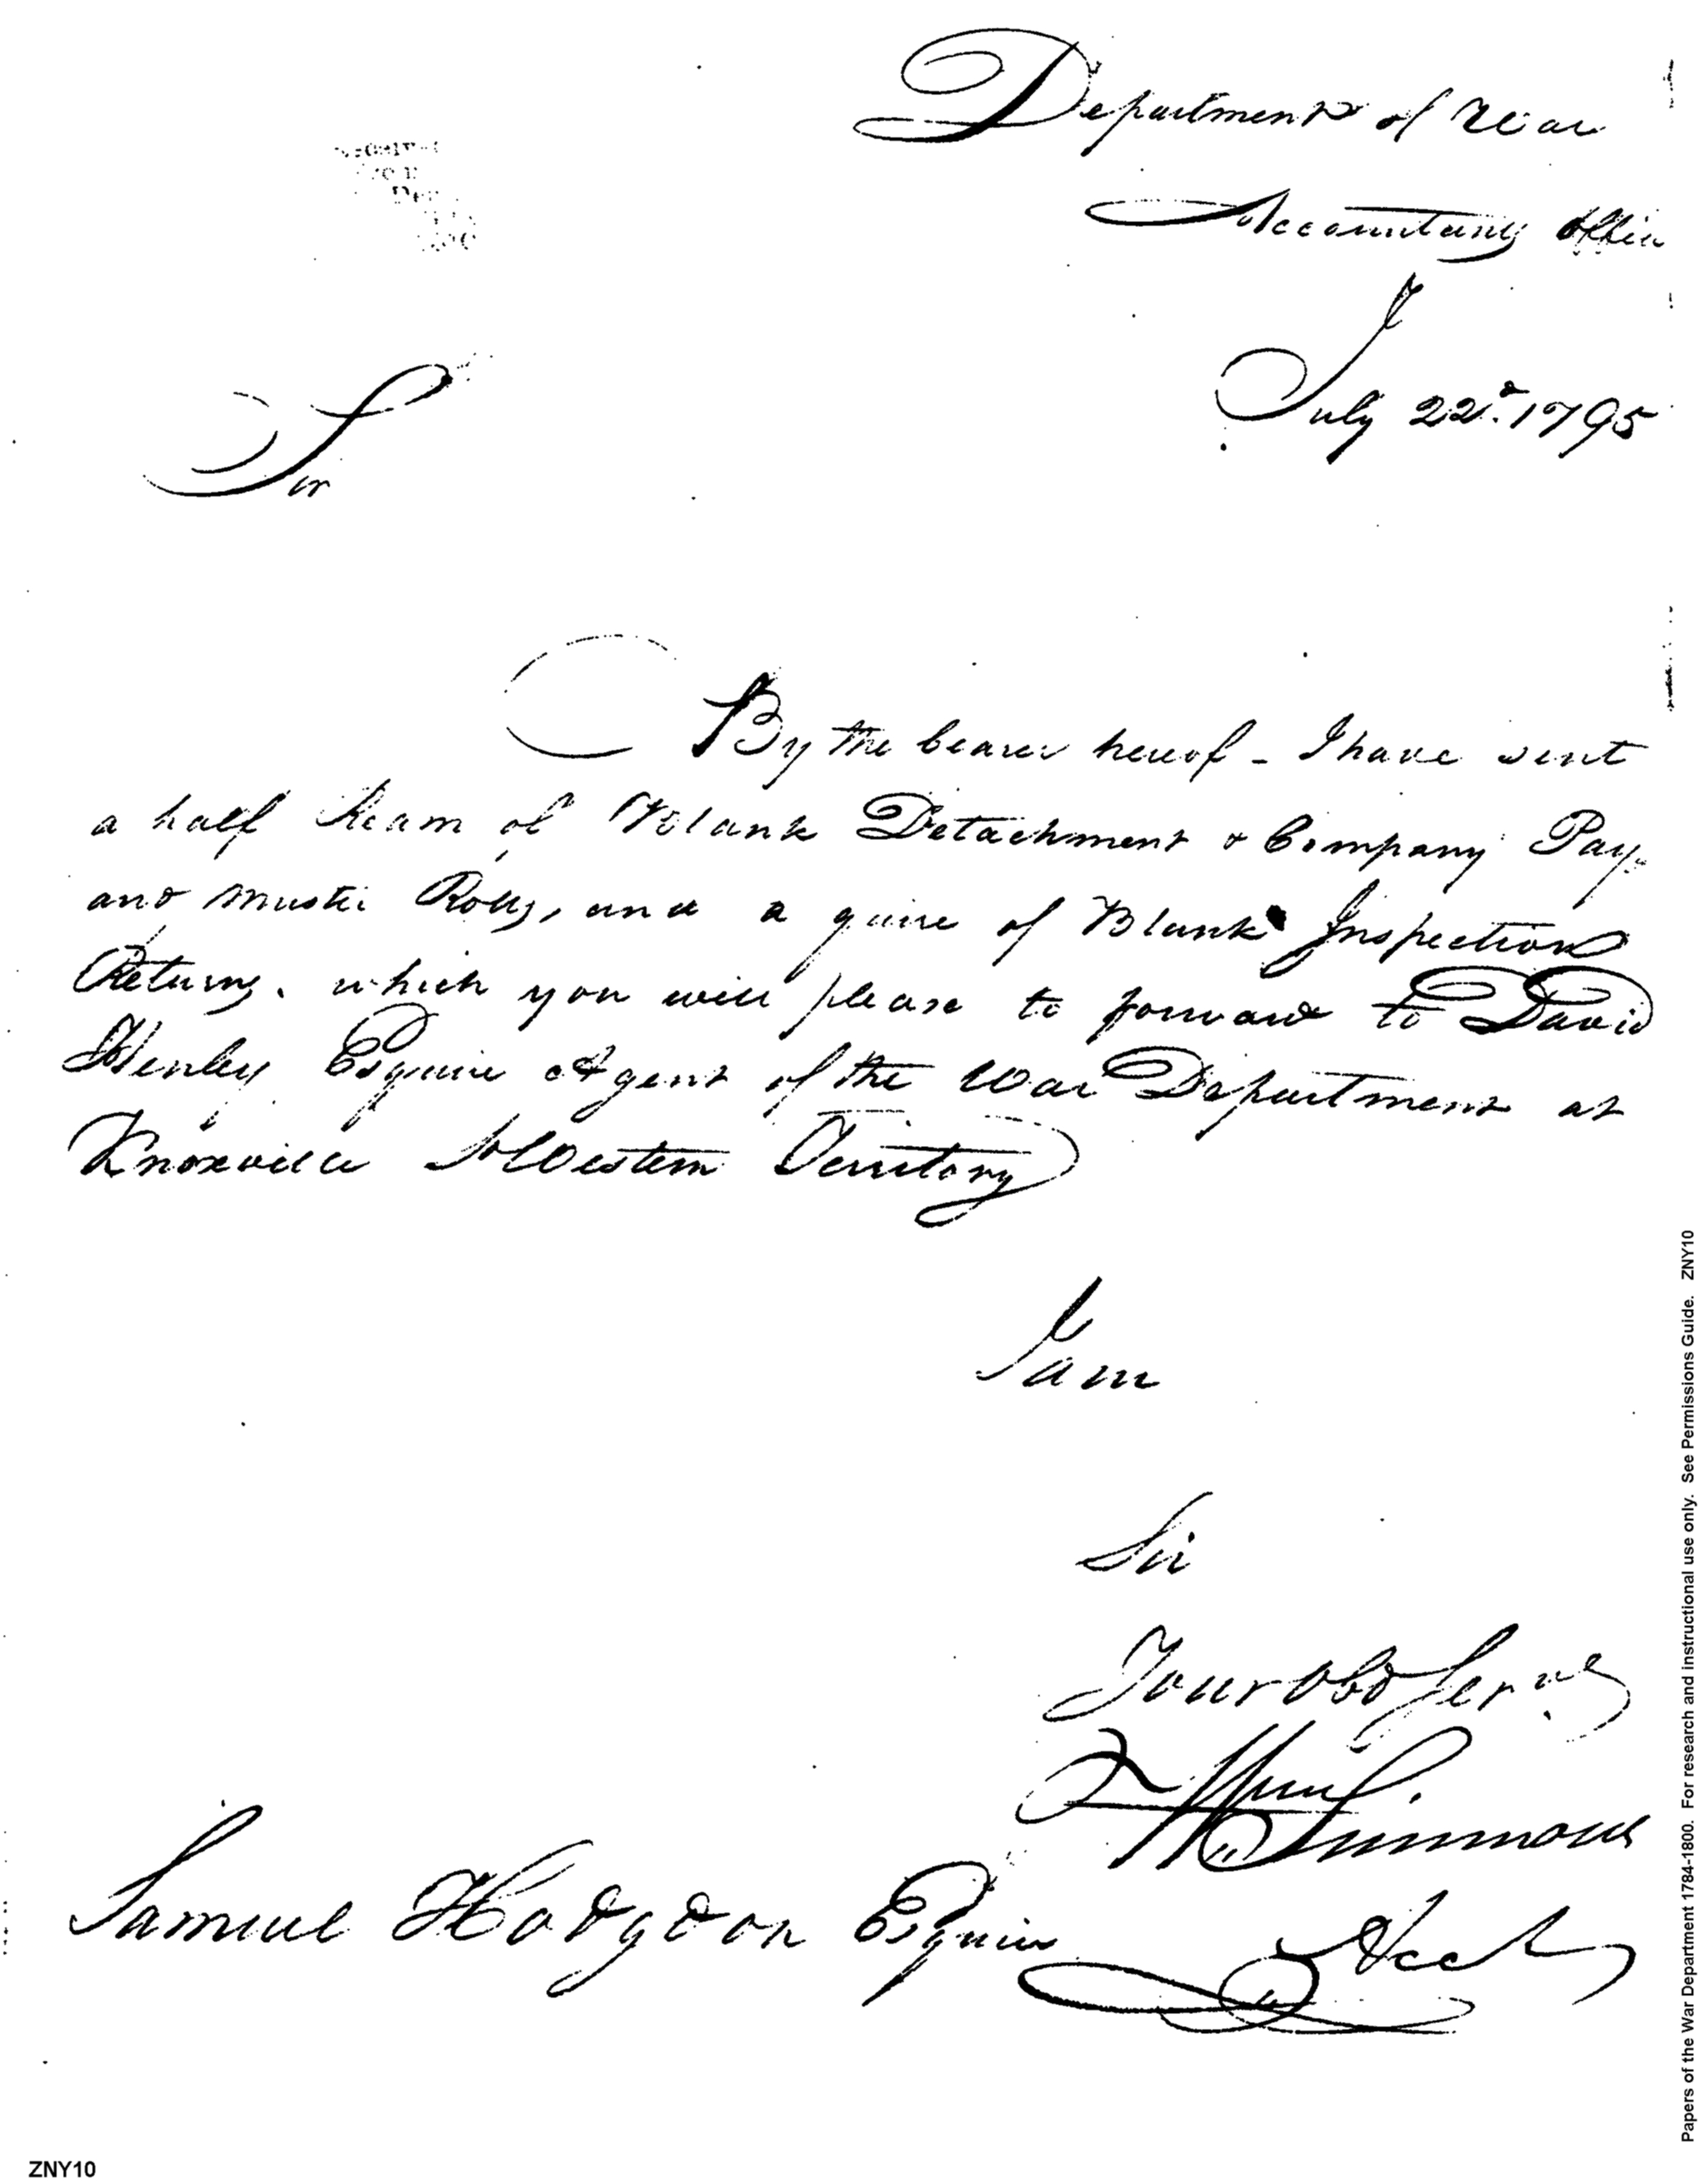 Department of War
Accountants Office
July 22d. 1795
Sir
By the bearer hereof - I have sent
a half Ream of Blank Detachment & Company Pay
and Muster Rolls, and a quire of Blank Inspection
Returns. which you will please to forward to David
Henley Esquire Agent of the War Department at
Knoxville S Western Territory
I am
Sir
Your Obd Servt
Wm Simmons
Samuel Hodgdon Esquire
Acct
Papers of the War Department 1784-1800. For research and instructional use only. See Permissions Guide. ZNY10
ZNY10